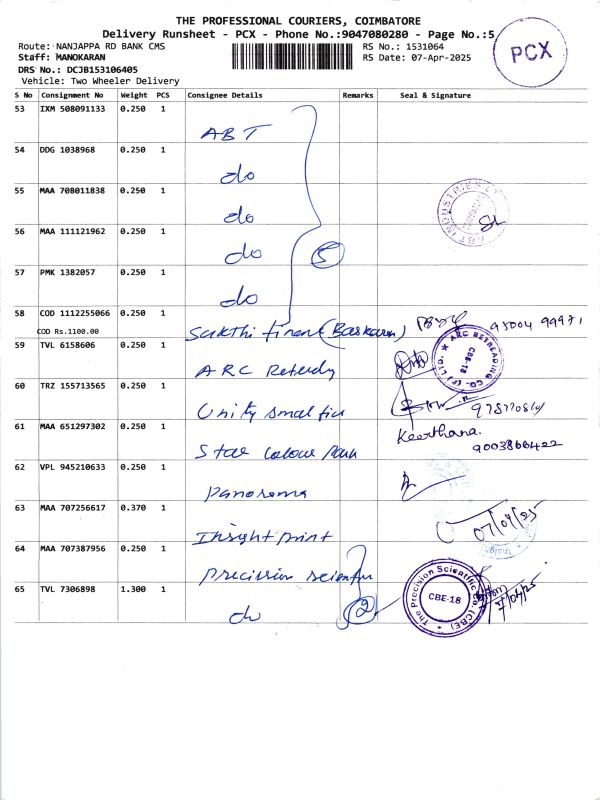 THE PROFESSIONAL COURIERS, COIMBATORE
Delivery Runsheet - PCX - Phone No.:9047080280 - Page No.:5
Route: NANJAPPA RD BANK CMS
RS No.: 1531064
Staff: MANOKARAN
RS Date: 07-Apr-2025
DRS No.: DCJB153106405
Vehicle: Two Wheeler Delivery
PCX
S No Consignment No Weight PCS Consignee Details Remarks Seal & Signature
53 IXM 508091133 0.250 1
ABT
54 DDG 1038968 0.250 1
do
55 MAA 708011838 0.250 1
do
ABT INDUSTRIES
56 MAA 111121962 0.250 1
do 5
57 PMK 1382057 0.250 1
do
58 COD 1112255066 0.250 1
COD Rs.1100.00
Sakthi finan (Baskaran) 95004 99971
59 TVL 6158606 0.250 1
ARC
ARC RETREADING CO. (P) LTD. CBE-18
60 TRZ 155713565 0.250 1
Unity small fin
61 MAA 651297302 0.250 1
Keerthana.
9003866422
Star Colour Park
62 VPL 945210633 0.250 1
Panorama
63 MAA 707256617 0.370 1
07/04/25
Insight print
Insight
64 MAA 707387956 0.250 1
Precission scientfu
The Precision Scientific Co. (CBE) CBE-18
65 TVL 7306898 1.300 1
do 2
7/04/25